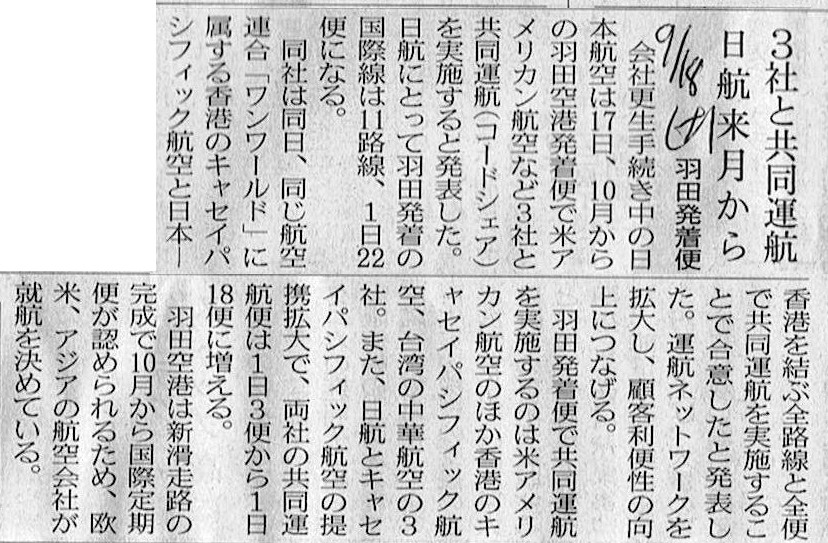 3社と共同運航
日航来月から
羽田発着便
9/18
会社更生手続き中の日
本航空は17日、10月から
の羽田空港発着便で米ア
メリカン航空など3社と
共同運航（コードシェア）
を実施すると発表した。
日航にとって羽田発着の
国際線は11路線、1日22
便になる。
同社は同日、同じ航空
連合「ワンワールド」に
属する香港のキャセイパ
シフィック航空と日本—
香港を結ぶ全路線と全便
で共同運航を実施するこ
とで合意したと発表し
た。運航ネットワークを
拡大し、顧客利便性の向
上につなげる。
羽田発着便で共同運航
を実施するのは米アメリ
カン航空のほか香港のキ
ャセイパシフィック航
空、台湾の中華航空の3
社。また、日航とキャセ
イパシフィック航空の提
携拡大で、両社の共同運
航便は1日3便から1日
18便に増える。
羽田空港は新滑走路の
完成で10月から国際定期
便が認められるため、欧
米、アジアの航空会社が
就航を決めている。